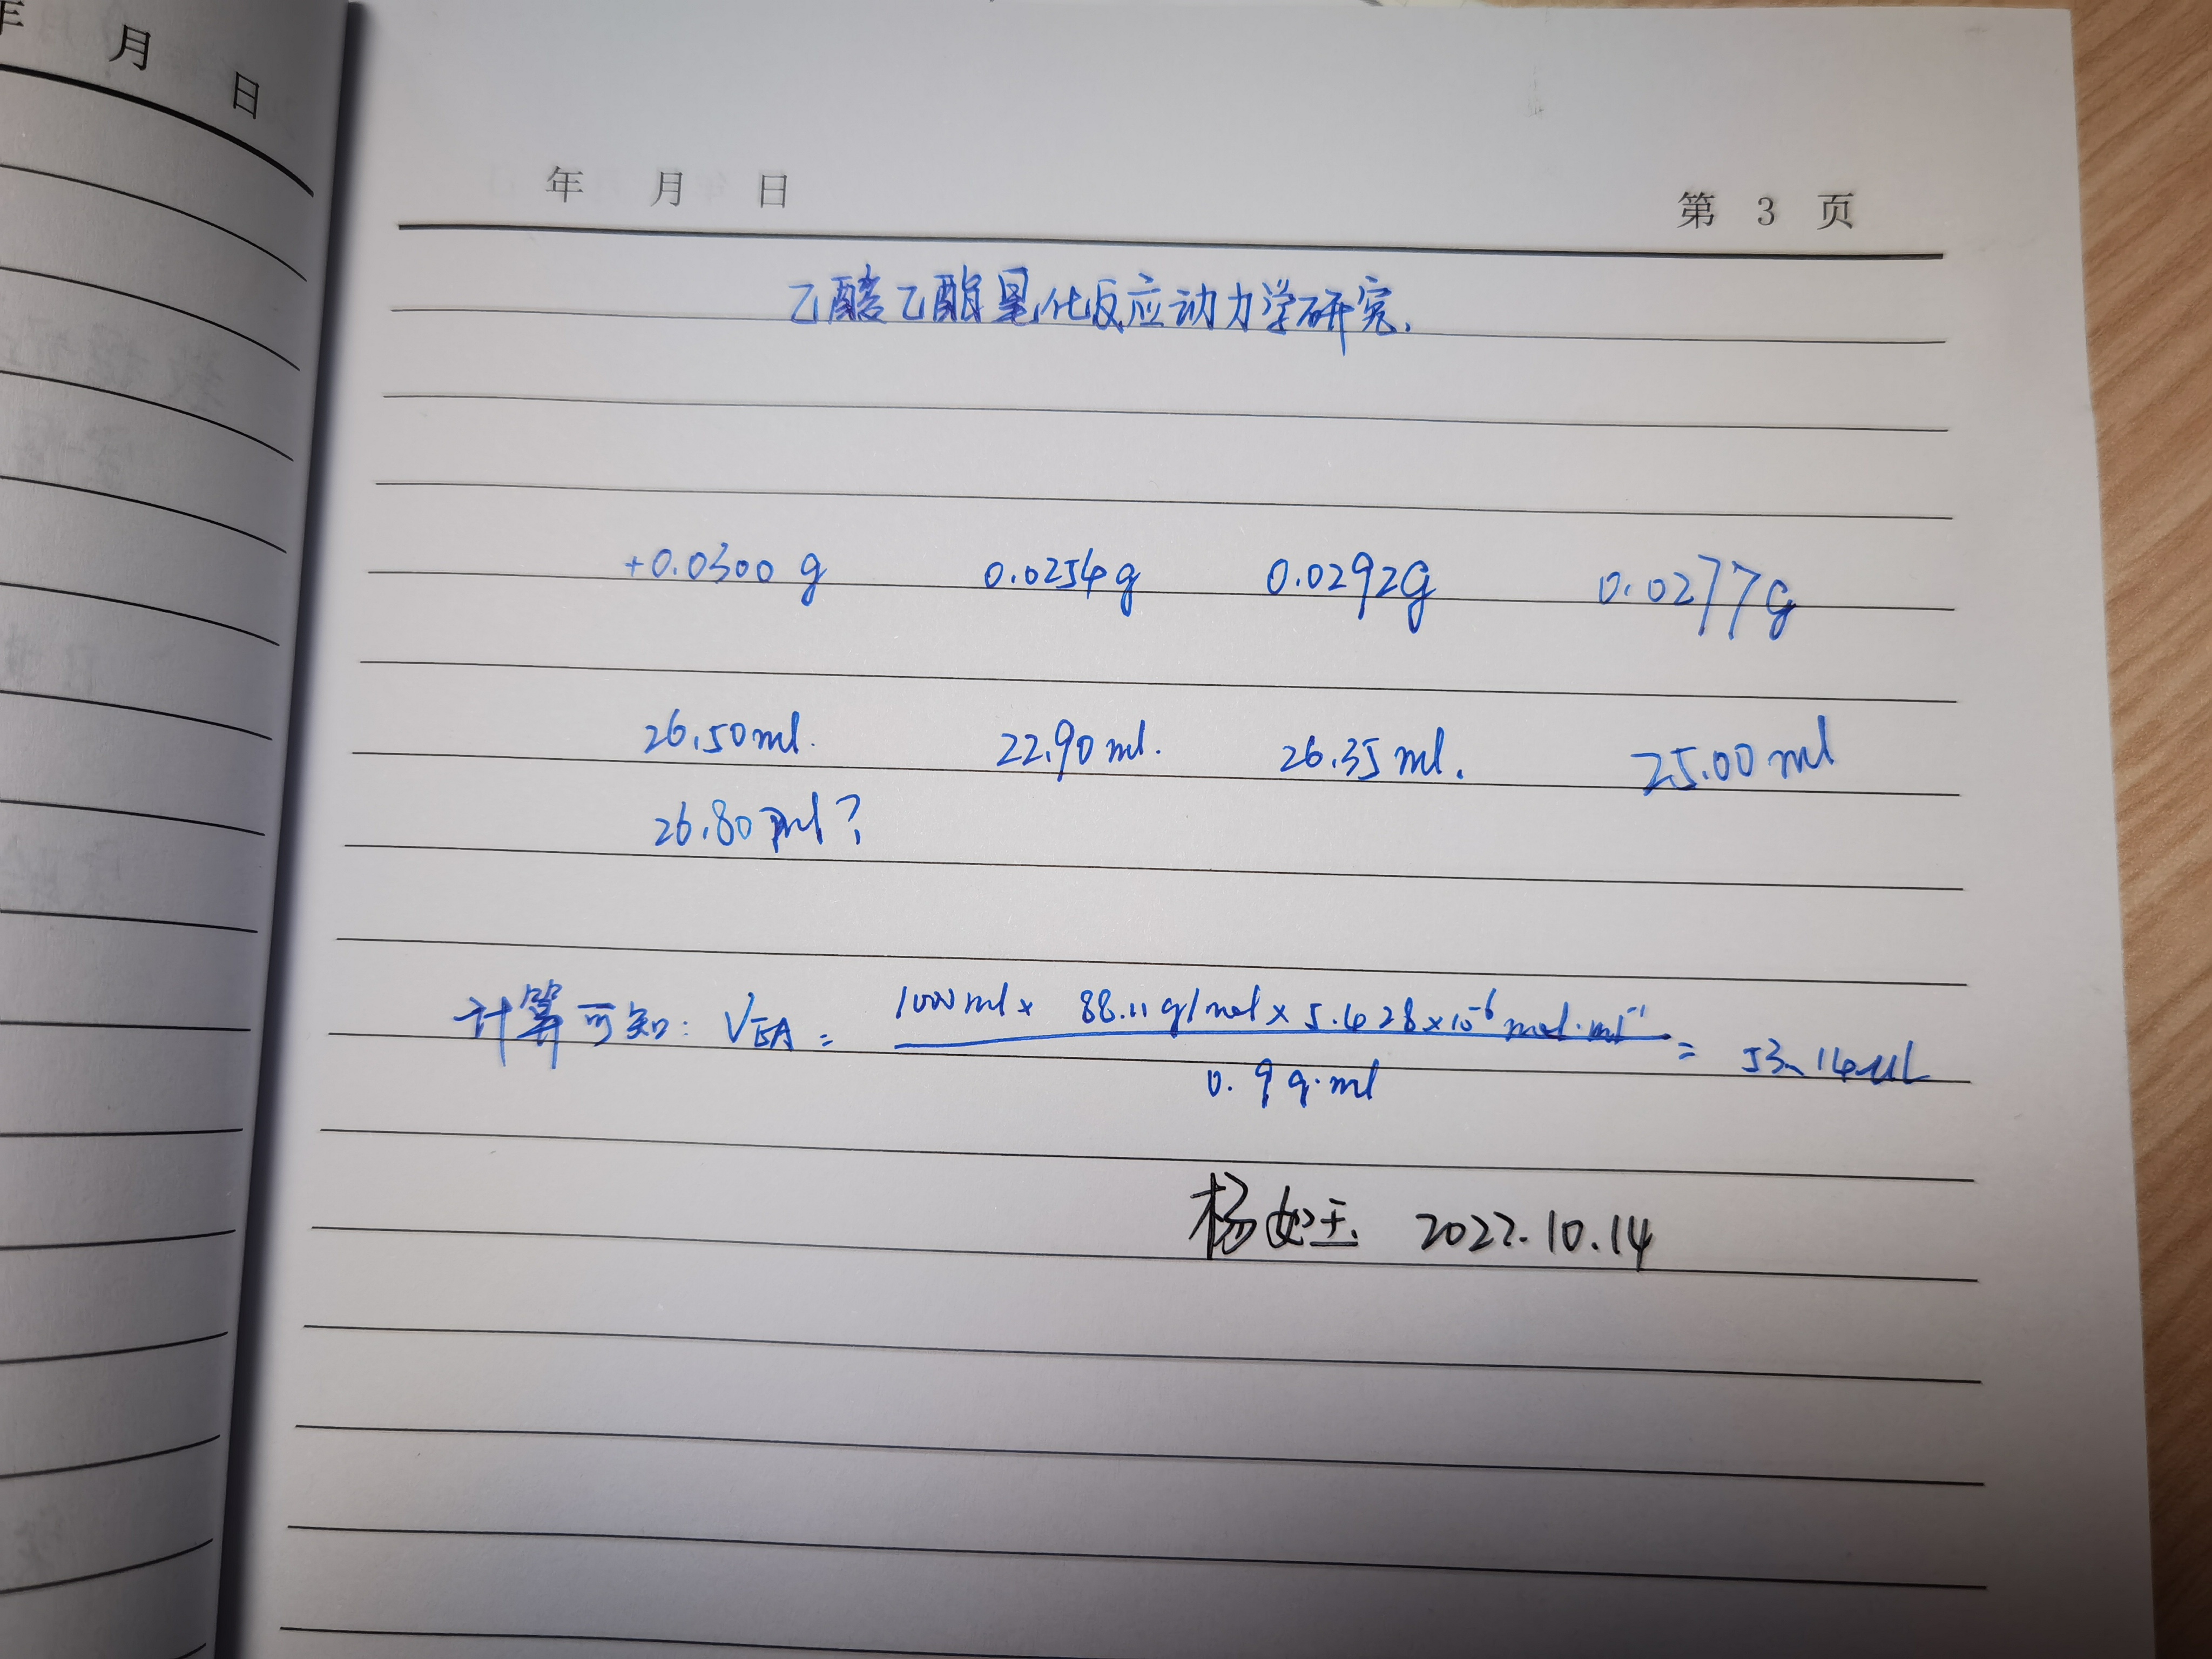 月 日
年 月 日 第 3 页
乙酸乙酯皂化反应动力学研究.
+0.0300 g 0.0254g 0.0292g 0.0277g
26.50ml. 22.90ml. 26.35ml. 25.00ml
26.80ml?
计算可知: VEA = 1000ml × 88.11g/mol × 5.428×10⁻⁶ mol·ml⁻¹ = 53.14μL
0.9g·ml
杨 2022.10.14